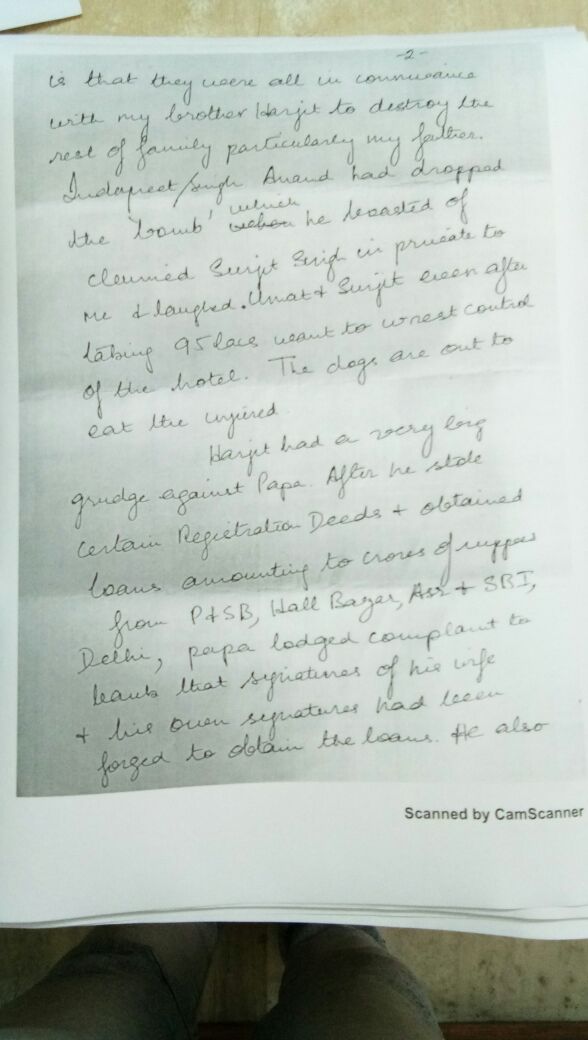 -2-
is that they were all in connivance
with my brother Harjit to destroy the
rest of family particularly my father.
Indapreet Singh Anand had dropped
the 'bomb' which he boasted of
Surjit Singh in private to
me & laughed. & Surjit even after
taking 95 lacs want to wrest control
of the hotel. The dogs are out to
eat the injured.
Harjit had a very big
grudge against Papa. After he stole
certain Registration Deeds & obtained
loans amounting to crores of ruppees
from P&SB, Hall Bazar, Asr & SBI,
Delhi, papa lodged complaint to
bank that signatures of his wife
& his own signatures had been
forged to obtain the loans. He also
Scanned by CamScanner